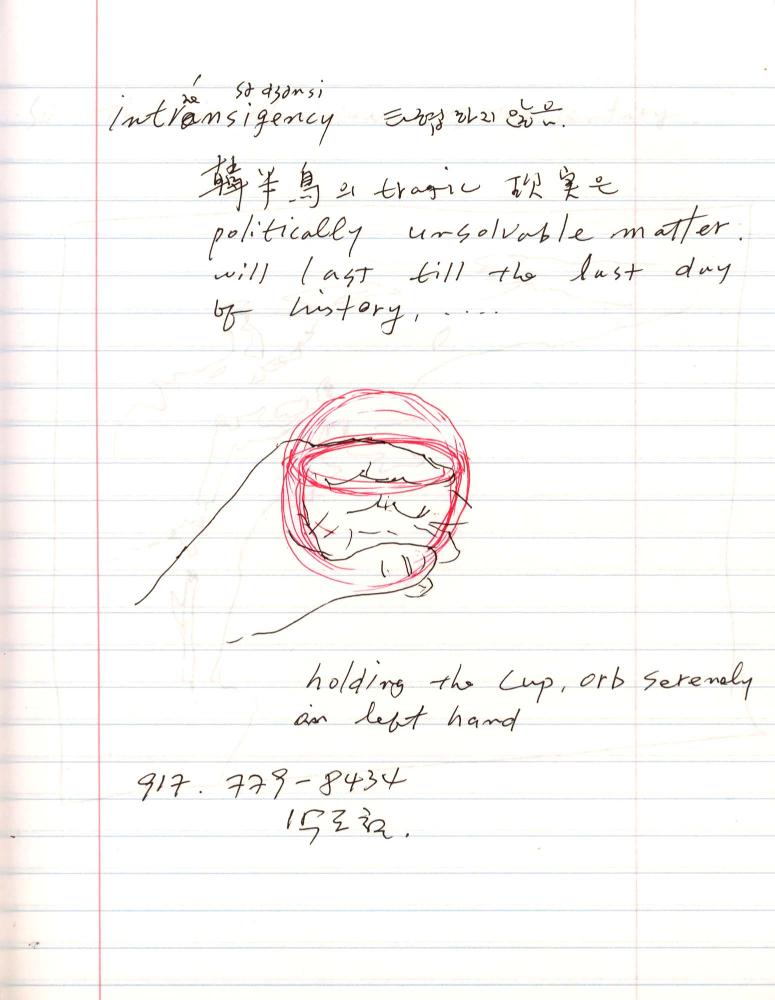 intransigency 타협하지 않음.
韓半鳥의 tragic 現実은
politically unsolvable matter.
will last till the last day
of history, .....
holding the cup, orb serenely
in left hand
917. 779-8434